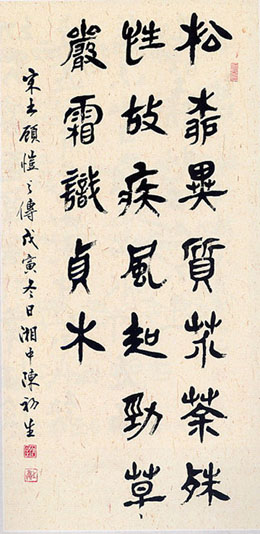 松異質荼殊
性故疾風知勁草
嚴霜識貞木
宋書顧愷之傳戊寅冬日湘中陳初生